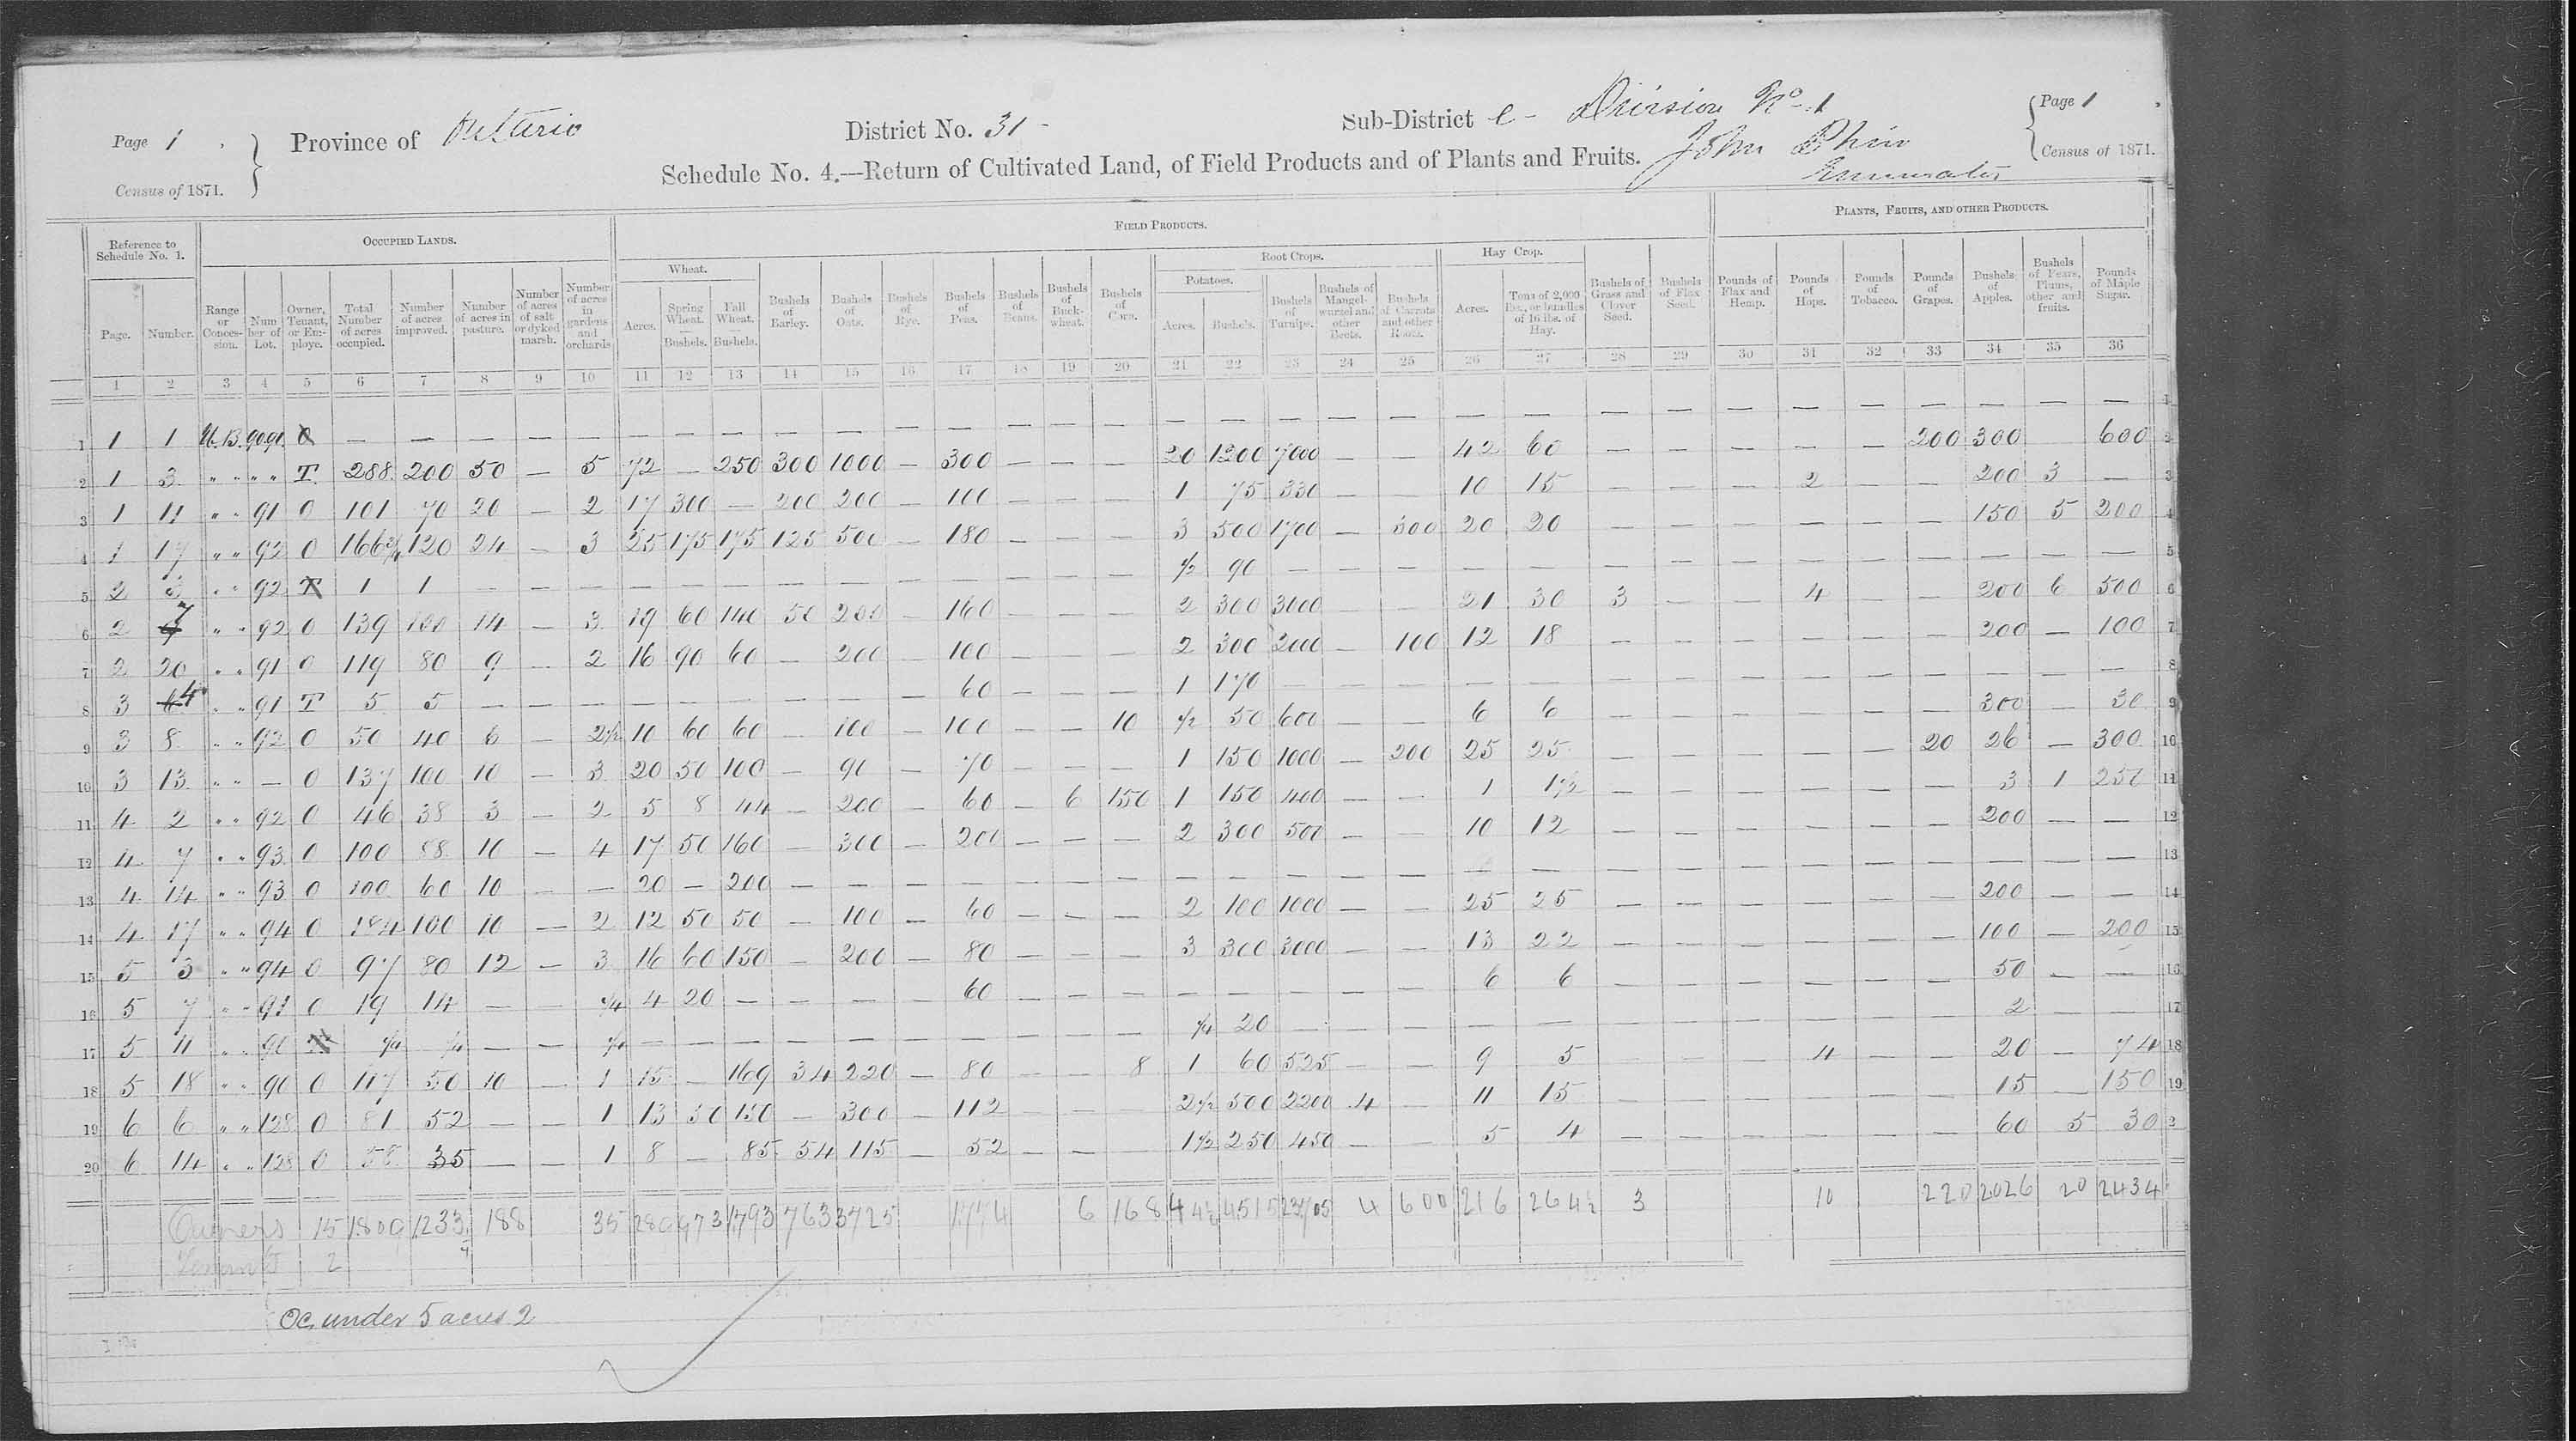 Page 1 Province of Ontario District No. 31 - Sub-District e - Division No. 1 Page 1
Census of 1871. Schedule No. 4.—Return of Cultivated Land, of Field Products and of Plants and Fruits. John Enumerator Census of 1871.
Reference to Schedule No. 1. OCCUPIED LANDS. FIELD PRODUCTS. PLANTS, FRUITS, AND OTHER PRODUCTS.
Wheat. Root Crops. Hay Crop.
Potatoes.
Page. Number. Range or Conces- sion. Num ber of Lot. Owner, Tenant, or Em- ploye. Total Number of acres occupied. Number of acres improved. Number of acres in pasture. Number of acres of salt or dyked marsh. Number of acres in gardens and orchards Acres. Spring Wheat. Bushels. Fall Wheat. — Bushels. Bushels of Barley. Bushels of Oats. Bushels of Rye. Bushels of Peas. Bushels of Beans. Bushels of Buck- wheat. Bushels of Corn. Acres. Bushels. Bushels of Turnips. Bushels of Mangel- wurzel and other Beets. Bushels of Carrots and other Roots. Acres. Tons of 2,000 lbs., or bundles of 16 lbs. of Hay. Bushels of Grass and Clover Seed. Bushels of Flax Seed. Pounds of Flax and Hemp. Pounds of Hops. Pounds of Tobacco. Pounds of Grapes. Bushels of Apples. Bushels of Pears, Plums, other and fruits. Pounds of Maple Sugar.
1 2 3 4 5 6 7 8 9 10 11 12 13 14 15 16 17 18 19 20 21 22 23 24 25 26 27 28 29 30 31 32 33 34 35 36
1 1 1 90.91. O — — — — — — — — — — — — — — — — — — — — — — — — — — — — — — — 1
2 1 3 " " " " T. 288. 200 50 — 5 72 — 250 300 1000 — 300 — — — 20 1200 7000 — — 42 60 — — — — — 200 300 600 2
3 1 11 " " 91 O 101 70 20 — 2 17 300 — 200 200 — 100 — — — 1 75 330 — — 10 15 — — — 2 — — 200 3 — 3
4 1 17 " " 92 O 166 3/4 120 24 — 3 25 175 175 125 500 — 180 — — — 3 500 1700 — 300 20 20 — — — — — — 150 5 200 4
5 2 3 " " 92 T 1 1 — — — — — — — — — — — — — 1/2 90 — — — — — — — — — — — — — — 5
6 2 7 " " 92 O 139 100 14 — 3 19 60 140 50 200 — 160 — — — 2 300 3000 — — 21 30 3 — — 4 — — 200 6 500 6
7 2 20 " " 91 O 119 80 9 — 2 16 90 60 — 200 — 100 — — — 2 300 2000 — 100 12 18 — — — — — — 200 — 100 7
8 3 4 " " 91 T 5 5 — — — — — — — — — 60 — — — 1 170 — — — — — — — — — — — — — — 8
9 3 8 " " 92 O 50 40 6 — 2 1/2 10 60 60 — 100 — 100 — — 10 1/2 50 600 — — 6 6 — — — — — — 300 — 30 9
10 3 13 " " — O 137 100 10 — 3 20 50 100 — 90 — 70 — — — 1 150 1000 — 200 25 25 — — — — — 20 26 — 300 10
11 4 2 " " 92 O 46 38 3 — 2 5 8 44 — 200 — 60 — 6 150 1 150 400 — — 1 1 1/2 — — — — — — 3 1 250 11
12 4 7 " " 93 O 100 88 10 — 4 17 50 160 — 300 — 200 — — — 2 300 500 — — 10 12 — — — — — — 200 — — 12
13 4 14 " " 93 O 100 60 10 — — 20 — 200 — — — — — — — — — — — — — — — — — — — — — — — 13
14 4 17 " " 94 O 184 100 10 — 2 12 50 50 — 100 — 60 — — — 2 100 1000 — — 25 25 — — — — — — 200 — — 14
15 5 3 " " 94 O 97 80 12 — 3 16 60 150 — 200 — 80 — — — 3 300 3000 — — 13 22 — — — — — — 100 — 200 15
16 5 7 " " 91 O 19 14 — — 1/4 4 20 — — — — 60 — — — — — — — — 6 6 — — — — — — 50 — — 16
17 5 11 " " 90 1/4 1/4 — — 1/4 — — — — — — — — — — 1/4 20 — — — — — — — — — — — 2 — — 17
18 5 18 " " 90 O 117 50 10 — 1 15 — 169 34 220 — 80 — — 8 1 60 525 — — 9 5 — — — 4 — — 20 — 74 18
19 6 6 " " 128 O 81 52 — — 1 13 50 150 — 300 — 112 — — 2 1/2 500 2200 4 — 11 15 — — — — — — 15 — 150 19
20 6 14 " " 128 O 35 — — 1 8 — 85 54 115 — 52 — — 1 1/2 250 450 — — 5 4 — — — — — — 60 5 30 2
Owners 15 1809 1233 188 35 280 973 1793 763 3725 1774 6 168 44 1/2 4515 23705 4 600 216 264 1/2 3 10 220 2026 20 2434
Tenants 2
Oc. under 5 acres 2